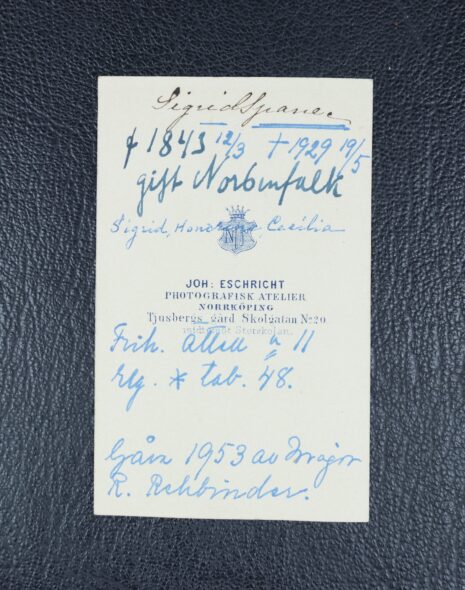 Sigrid Sparre
f 1843 12/3 † 1929 19/5
gift Norbinfalk
Sigrid, Cecilia
JOH: ESCHRICHT
PHOTOGRAFISK ATELIER
NORRKÖPING
Tjusbergs gård Skolgatan No 20
midt emot Storskolan.
Frih. ätten n 11
tab. 48.
Gåva 1953 av
R. Rehbinder.